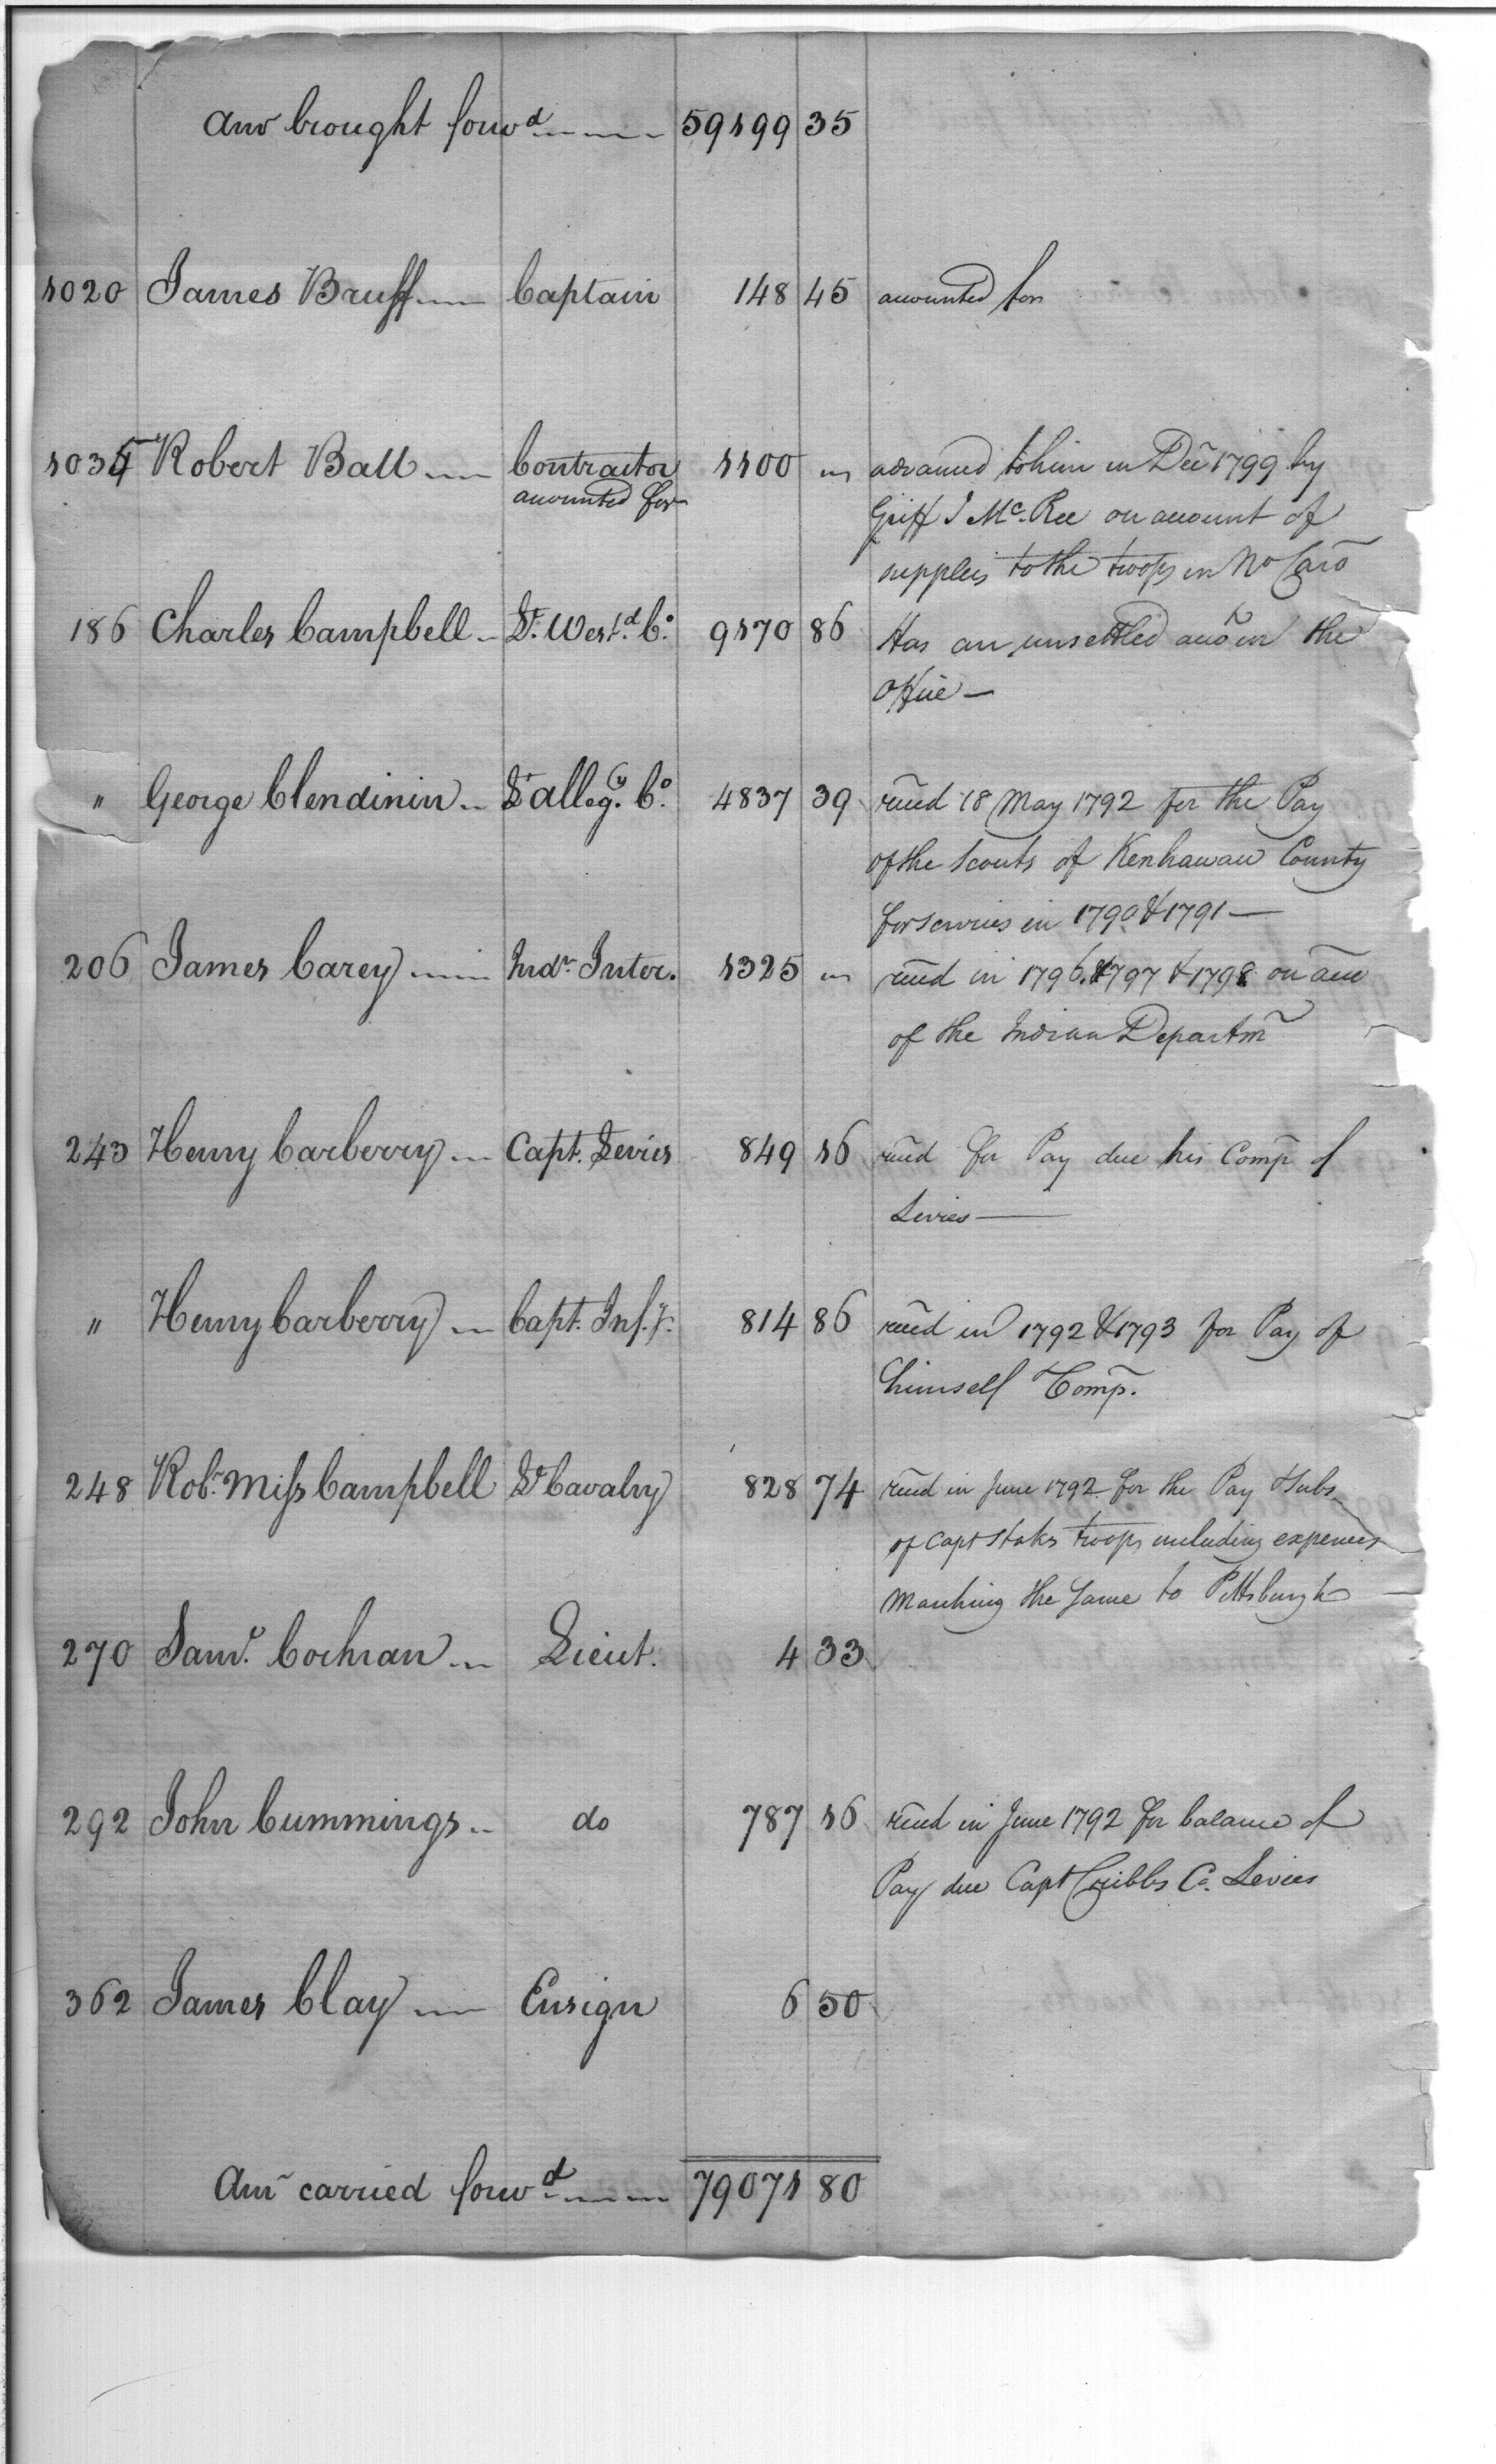 Amt brought forwd 59199 35
1020 James Bruff Captain 148 45 accounted for
1035 Robert Ball Contractor 1100 " advanced to him in Dec 1799 by
accounted for
Griff J McRee on account of
supplies to the troops in No Caro
186 Charles Campbell Lt. Westd. Co. 9170 86 Has an unsettled acco in the
Office —
" George Clendinin Lt allegy. Co. 4837 39 recd 18 May 1792 for the Pay
of the Scouts of Kenhawau County
for services in 1790 & 1791 —
206 James Carey Indn Inter. 1325 " recd in 1796. &1797 & 1798 on acc
of the Indian Departm
243 Henry Carberry Capt. Levies 849 16 recd for Pay due his Comp of
Levies —
" Henry Carberry Capt. Infy. 814 86 recd in 1792 & 1793 for Pay of
himself & Comp.
248 Robt. Miss Campbell Lt Cavalry 828 74 recd in June 1792 for the Pay & Subs
of Capt Stakes troops including expences
marching the same to Pittsburgh
270 Saml. Cochran Lieut. 4 33
292 John Cummings do 787 16 recd in June 1792 for balance of
Pay due Capt Cribbs Co. Levies
362 James Clay Ensign 6 50
Amt carried forwd 79071 80